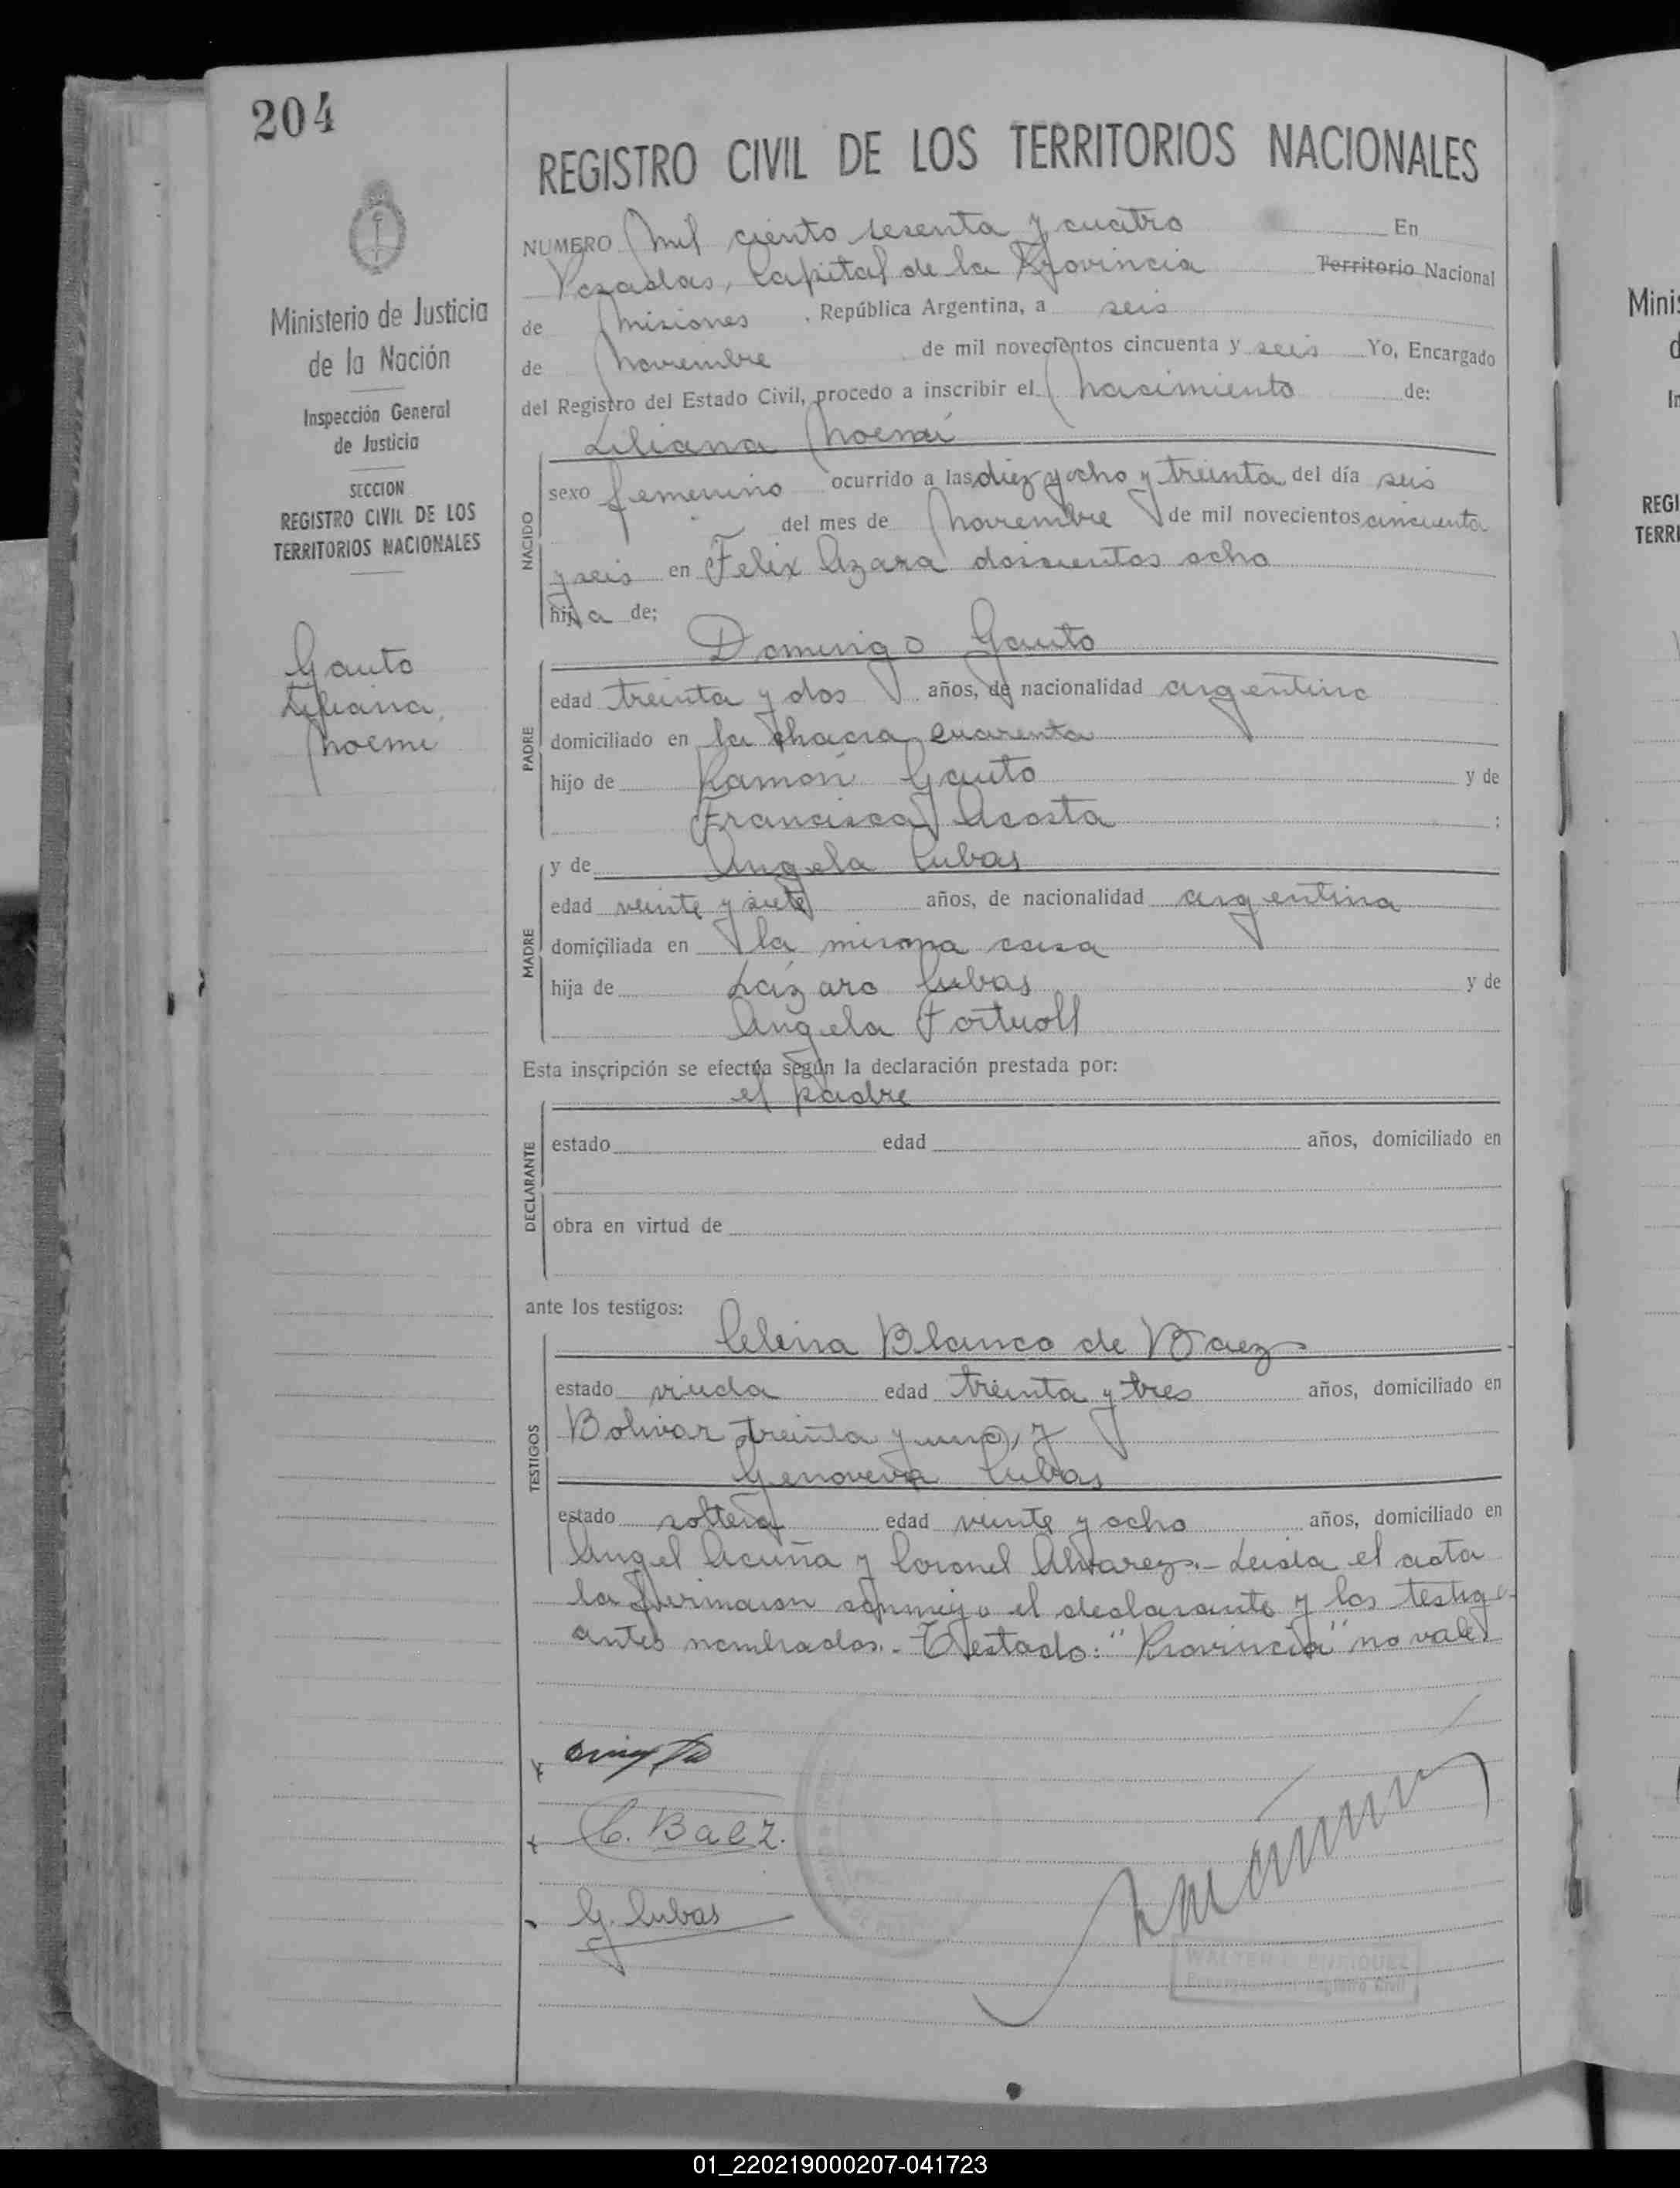 204
REGISTRO CIVIL DE LOS TERRITORIOS NACIONALES
Ministerio de Justicia
de la Nación
Inspección General
de Justicia
SECCION
REGISTRO CIVIL DE LOS
TERRITORIOS NACIONALES
Gauto
Liliana
Noemi
NUMERO Mil ciento sesenta y cuatro En
Posadas, Capital de la Provincia Territorio Nacional
de Misiones , República Argentina, a seis
de Noviembre de mil novecientos cincuenta y seis Yo, Encargado
del Registro del Estado Civil, procedo a inscribir el Nacimiento de:
Liliana Noemí
NACIDO
sexo femenino ocurrido a las diez y ocho y treinta del día seis
del mes de Noviembre de mil novecientos cincuenta
y seis en Felix Azara doscientos ocho
hija de:
Domingo Gauto
PADRE
edad treinta y dos años, de nacionalidad argentino
domiciliado en la chacra cuarenta
hijo de Ramón Gauto y de
Francisca Acosta :
y de Angela Cubas
MADRE
edad veinte y siete años, de nacionalidad argentina
domiciliada en la misma casa
hija de Lázaro Cubas y de
Angela
Esta inscripción se efectúa según la declaración prestada por:
el padre
DECLARANTE
estado edad años, domiciliado en
obra en virtud de
ante los testigos:
Celina Blanco de Baez
TESTIGOS
estado viuda edad treinta y tres años, domiciliado en
Bolivar treinta y uno, y
Genoveva Cubas
estado soltera edad veinte y ocho años, domiciliado en
Angel Acuña y Coronel Alvarez.- Leida el acta
la firmaron conmigo el declarante y los testigos
antes nombrados.- Testado: "Provincia" no vale
C. Baez.
G. Cubas
WALTER ENRIQUEZ
Encargado del Registro Civil
Minis
REGI
TERRI
01_220219000207-041723